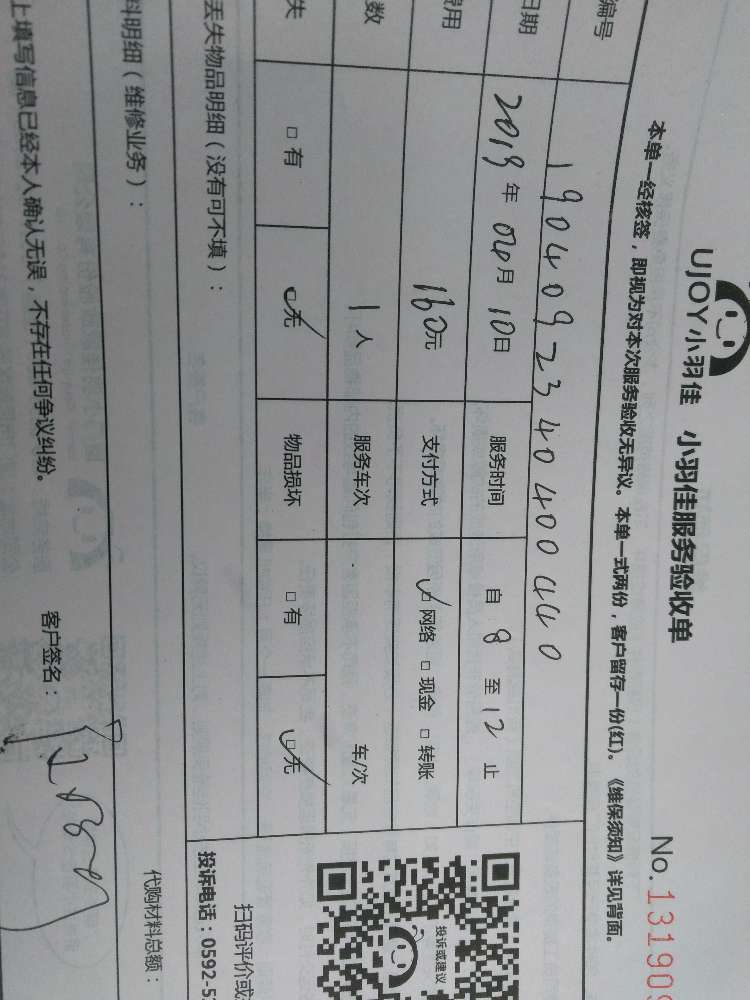 UJOY小羽佳 小羽佳服务验收单
No. 13190
本单一经核签，即视为对本次服务验收无异议。本单一式两份，客户留存一份(红)。《维保须知》详见背面。
编号 1904092340400440
日期 2019年04月10日 服务时间 自 8 至 12 止
费用 160元 支付方式 ☑网络 □现金 □转账
数 1人 服务车次 车/次
失 □有 ☑无 物品损坏 □有 ☑无
丢失物品明细（没有可不填）：
投诉或建议
扫码评价或
投诉电话：0592-5
料明细（维修业务）：
代购材料总额：
上填写信息已经本人确认无误，不存在任何争议纠纷。
客户签名：